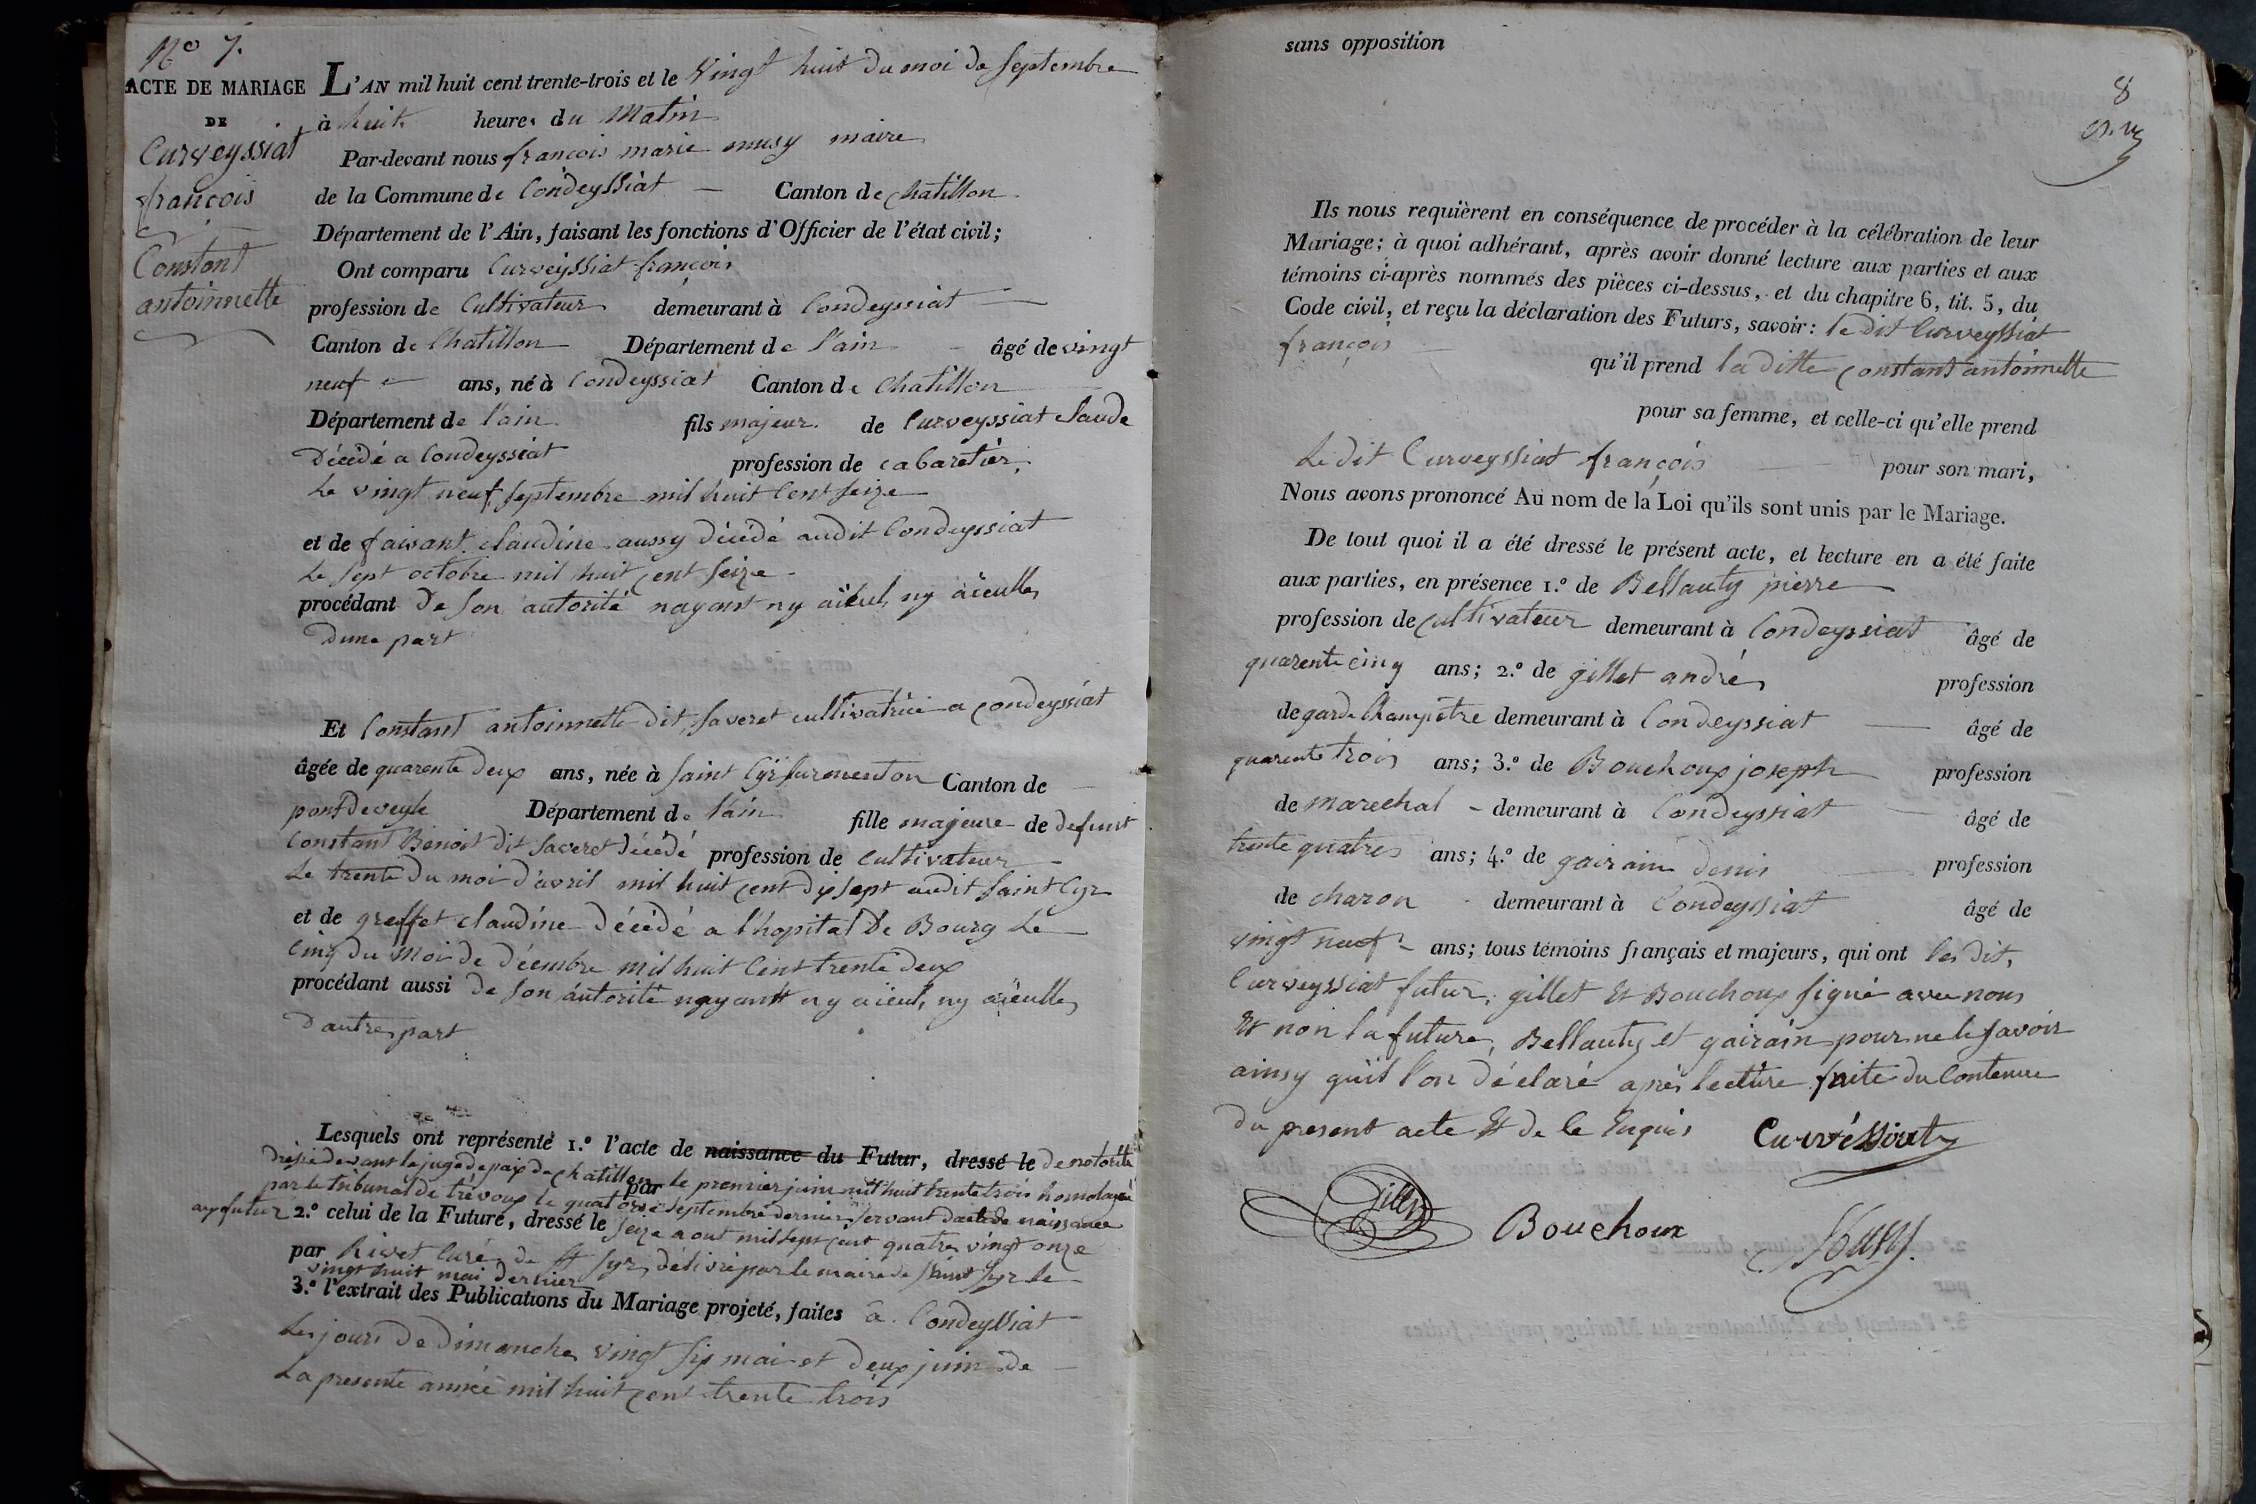 N.o 7.
ACTE DE MARIAGE
DE
Curveyssiat
françois
Constant
antoinnette
L'AN mil huit cent trente-trois et le vingt huit du moi de septembre
à huit heures du Matin
Par-devant nous françois marie musy maire
de la Commune de Condeyssiat Canton de chatillon
Département de l'Ain, faisant les fonctions d'Officier de l'état civil;
Ont comparu Curveyssiat françois
profession de Cultivateur demeurant à Condeyssiat
Canton de Chatillon Département de l'ain âgé de vingt
neuf ans, né à Condeyssiat Canton de Chatillon
Département de l'ain fils majeur de Curveyssiat Claude
Décédé a Condeyssiat profession de cabaretier,
Le vingt neuf septembre mil huit Cent seize
et de faisant claudine aussy décédé audit Condeyssiat
Le sept octobre mil huit cent seize
procédant de son autorité nayant ny aïeul, ny aïeulle,
Dune part
Et Constant antoinnette dit saveret cultivatrice a condeyssiat
âgée de quarente deux ans, née à saint Cÿr surmenton Canton de
pontdeveyle Département de l'ain fille majeure de defunt
Constant Benoit dit saveret décédé profession de cultivateur
Le trente du moi d'avril mil huit cent dixsept audit saint Cyr
et de greffet claudine décédé a l'hopital de Bourg Le
Cinq du Moi de décembre mil huit Cent trente deux
procédant aussi de son autorité nayant ny aïeul, ny aïeulle,
D'autre part
Lesquels ont représenté 1.° l'acte de naissance du Futur, dressé le de notorité
dressé devant le juge de paix de chatillon par le premier juin mil huit trente trois homologué
par le tribunal de trévoux le quatorze septembre dernier servant d'acte de naissance
au futur 2.° celui de la Future, dressé le seize aout mil sept cent quatre vingt onze
par Rivet Curé de St Cyr, délivré par le maire de saint Cyr le
vingt huit mai dernier
3.° l'extrait des Publications du Mariage projeté, faites a Condeyssiat
Les jours de dimanche vingt six mai et deux juin de
La presente année mil huit cent trente trois
sans opposition
8
Ils nous requièrent en conséquence de procéder à la célébration de leur
Mariage; à quoi adhérant, après avoir donné lecture aux parties et aux
témoins ci-après nommés des pièces ci-dessus, et du chapitre 6, tit. 5, du
Code civil, et reçu la déclaration des Futurs, savoir: le dit Curveyssiat
françois
qu'il prend la ditte constant antoinnette
pour sa femme, et celle-ci qu'elle prend
Le dit Curveyssiat françois pour son mari,
Nous avons prononcé Au nom de la Loi qu'ils sont unis par le Mariage.
De tout quoi il a été dressé le présent acte, et lecture en a été faite
aux parties, en présence 1.° de Bellauty pierre
profession de cultivateur demeurant à Condeyssiat âgé de
quarente cinq ans; 2.° de gillet andré profession
de garde Champêtre demeurant à Condeyssiat âgé de
quarente trois ans; 3.° de Bouchoux joseph profession
de marechal demeurant à Condeyssiat âgé de
trente quatre ans; 4.° de gairain denis profession
de charon demeurant à Condeyssiat âgé de
vingt neuf ans; tous témoins français et majeurs, qui ont les dit,
Curveyssiat futur, gillet Et Bouchoux signé avec nous
Et non la future, Bellauty et gairain pour ne le savoir
ainsy qu'il l'on déclaré après lecture faite du Contenue
du present acte Et de le Enquis Curvéssiat
Gillet Bouchoux Musy